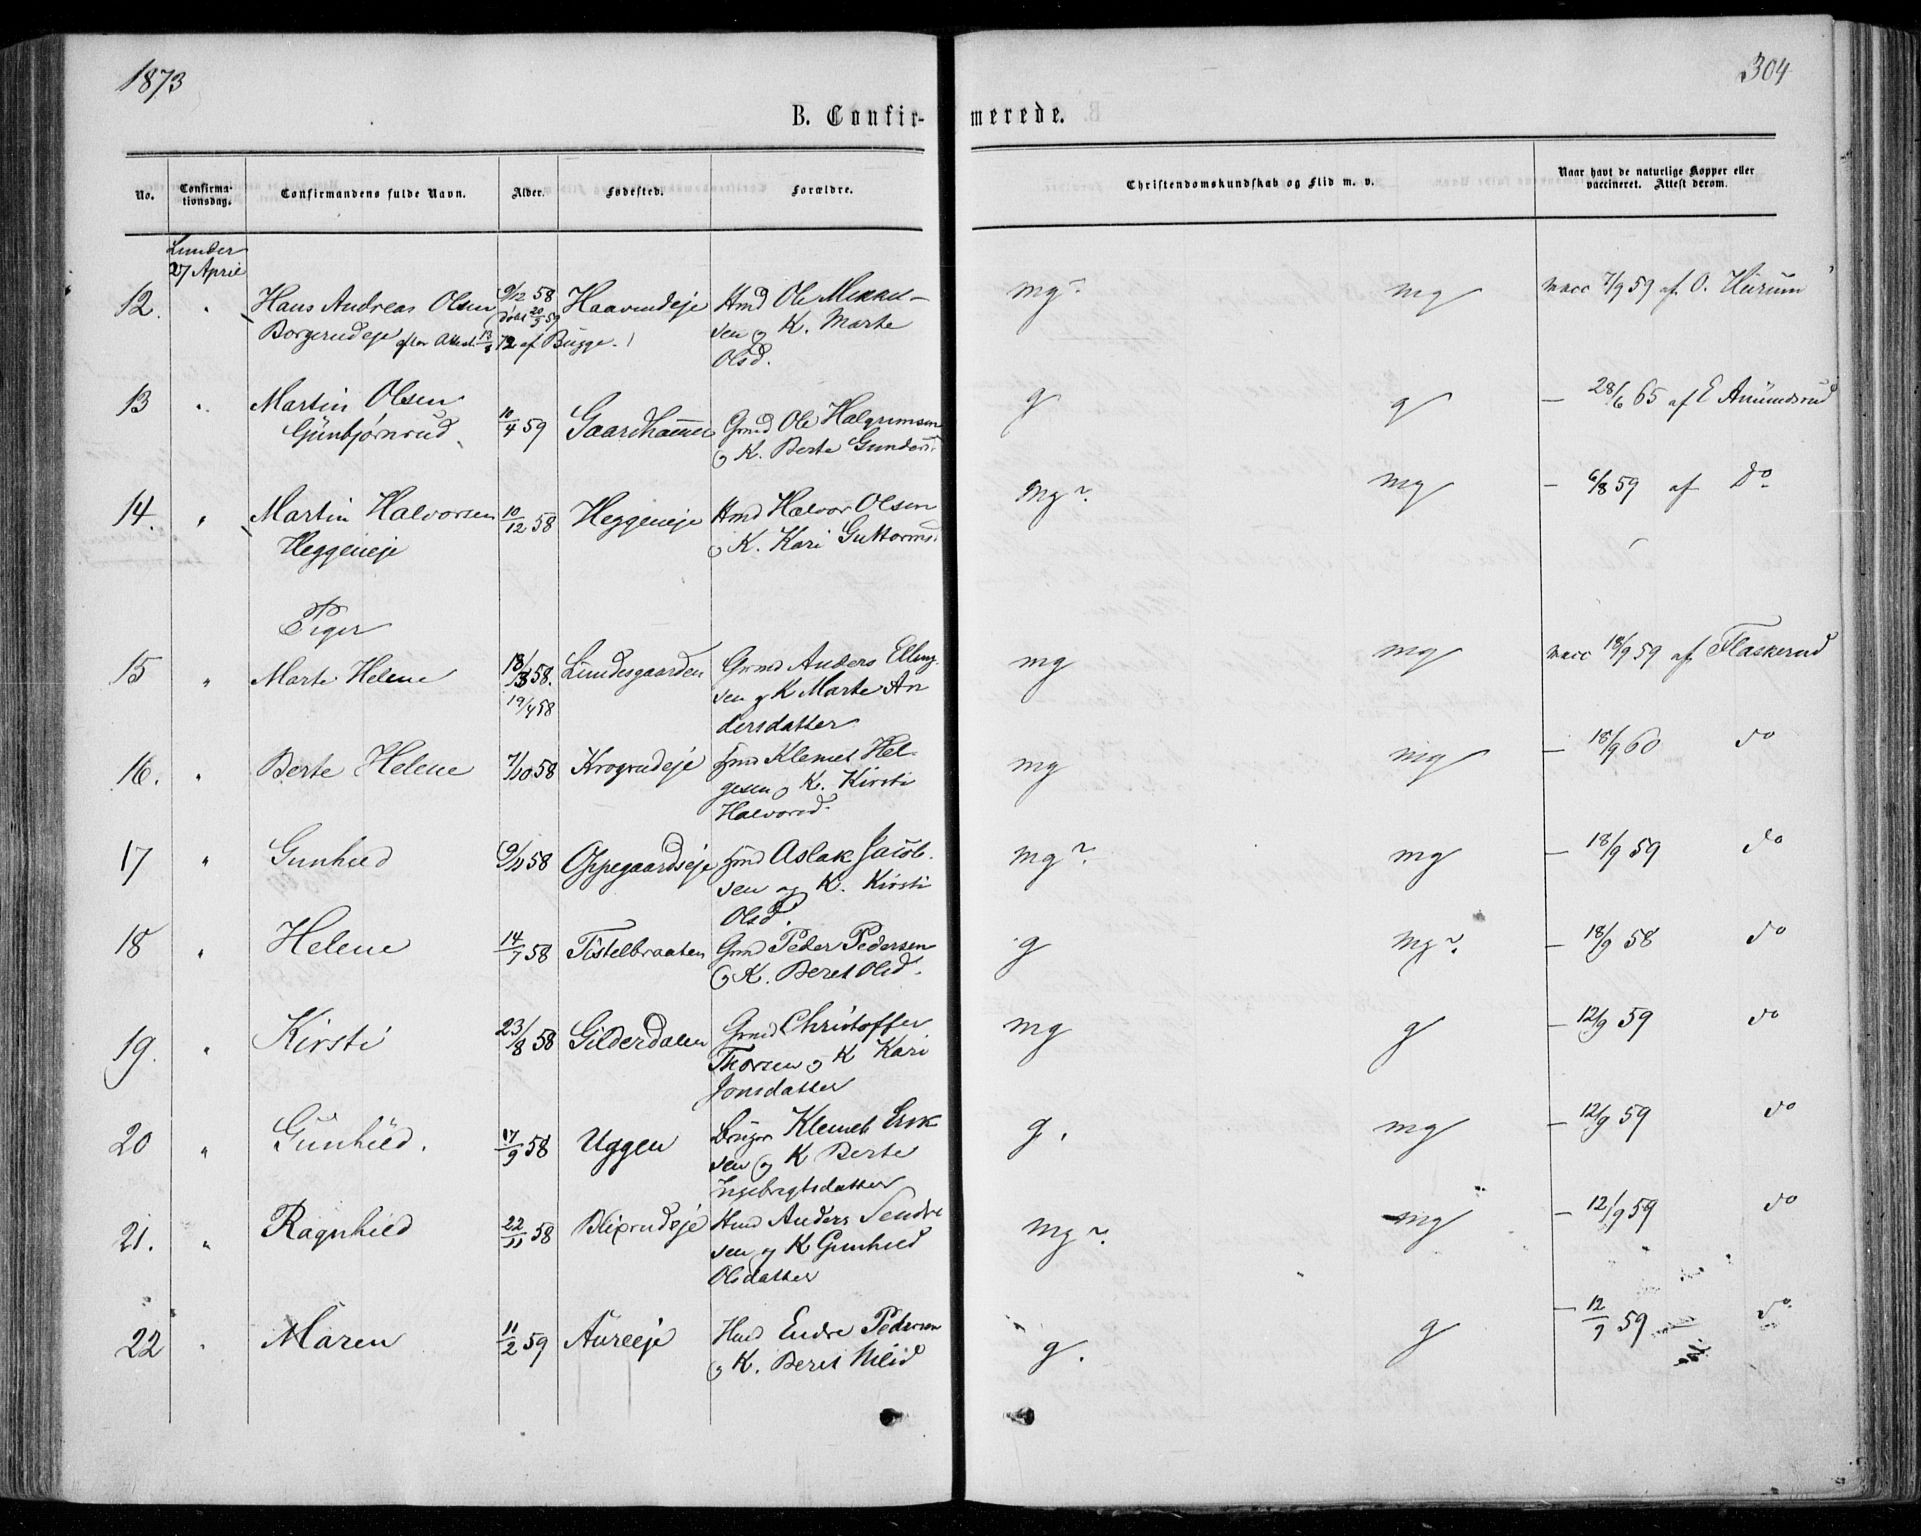 1873
304
B. Confir-merede.
No.
Confirma-
tionsdag.
Confirmandens fulde Navn.
Alder.
Fødested.
Forældre.
Christendomskundskab og Flid m. v.
Naar havt de naturlige Kopper eller
vaccineret. Attest derom.
Lunder
27 April
12. " Hans Andreas Olsen 9/12 58 Haavendeje Hmd Ole Mikkel- mg? mg vacc 7/9 59 af O. Hurum
Borgerudeje efter Attest 13/3 72 af Bugge. døbt 20/3 59 sen og K. Marte
Olsd.
13 " Martin Olsen 10/4 59 Gaardhammer Gmd Ole Halgrimsen g g — 28/6 65 af E Amundsrud
Gunbjørnrud og K. Berte Gundersd.
14. " Martin Halvorsen 10/12 58 Heggeneje Hmd Halvor Olsen mg? mg — 6/8 59 af Do
Heggeneje og K. Kari Guttormsd.
Piger
15 " Marte Helene 18/3 58. Lundesgaarden Gmd Anders Elling- mg mg vacc 18/9 59 af Flaskerud
19/4 58 sen og K Marte An
dersdatter
16. " Berte Helene 7/10 58 Krogrudeje Hmd Klemet Hel- mg mg — 18/9 60 do
gesen og K. Kirsti
Halvorsd.
17 " Gunhild 9/11 58 Oppegaardseje Hmd Aslak Jacob- mg? mg — 18/9 59 do
sen og K. Kirsti
Olsd.
18 " Helene 14/7 58 Tistelbraaten Gmd Peder Pedersen g mg? — 18/9 58 do
og K. Beret Olsd.
19. " Kirsti 23/8 58 Gilderdalen Gmd Christoffer mg g — 12/9 59 do
Thorsen og K Kari
Jonsdatter
20 " Gunhild. 17/9 58 Uggen Bruger Klemet Erik g. mg — 12/9 59 do
sen og K Berte
Ingebrigtsdatter
21. " Ragnhild 22/11 58 Blixrudeje Hmd Anders Sendre mg? mg — 12/9 59 do
sen og K Gunhild
Olsdatter
22 " Maren 11/2 59 Aureeje Hmd Endre Pedersen g. g — 12/9 59 do
og K. Beret Nilsd